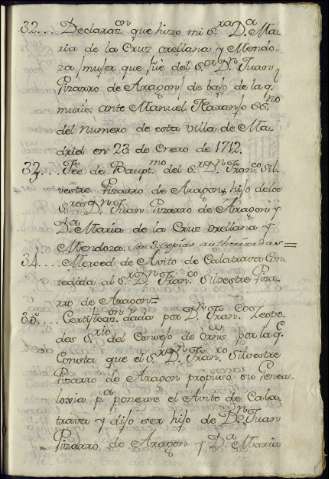 32... Declaraz.on que hizo mi S.ra D.a Ma
ria de la Cruz orellana y Mendo
za muger que fué del S.or D.n Juan
Pizarro de Aragon de bajo de la q.
murio: ante Manuel Naranjo es.no
del numero de esta villa de Ma
drid en 23 de Enero de 1712.
33... Fee de Bapt.mo del S.or D.n Fran.co Sil
vestre Pizarro de Aragon, hijo de los
S.res D.n Juan Pizarro de Aragon y
D.a Maria de la Cruz orellana y
Mendoza. en copias authorizadas=
34... Merced de Avito de Calatrava Con
cedida al S.or D.n Fran.co Silvestre Piza
rro de Aragon=
35... Certificaz.on dada por D.n Juan
del Consejo de orns. por la q.
Consta que el S.or D.n Fran.co Silvestre
Pizarro de Aragon propuso su Genea
loxia p.a ponerse el Avito de Cala
trava y dijo ser hijo de D.n Juan
Pizarro de Aragon y D.a Maria